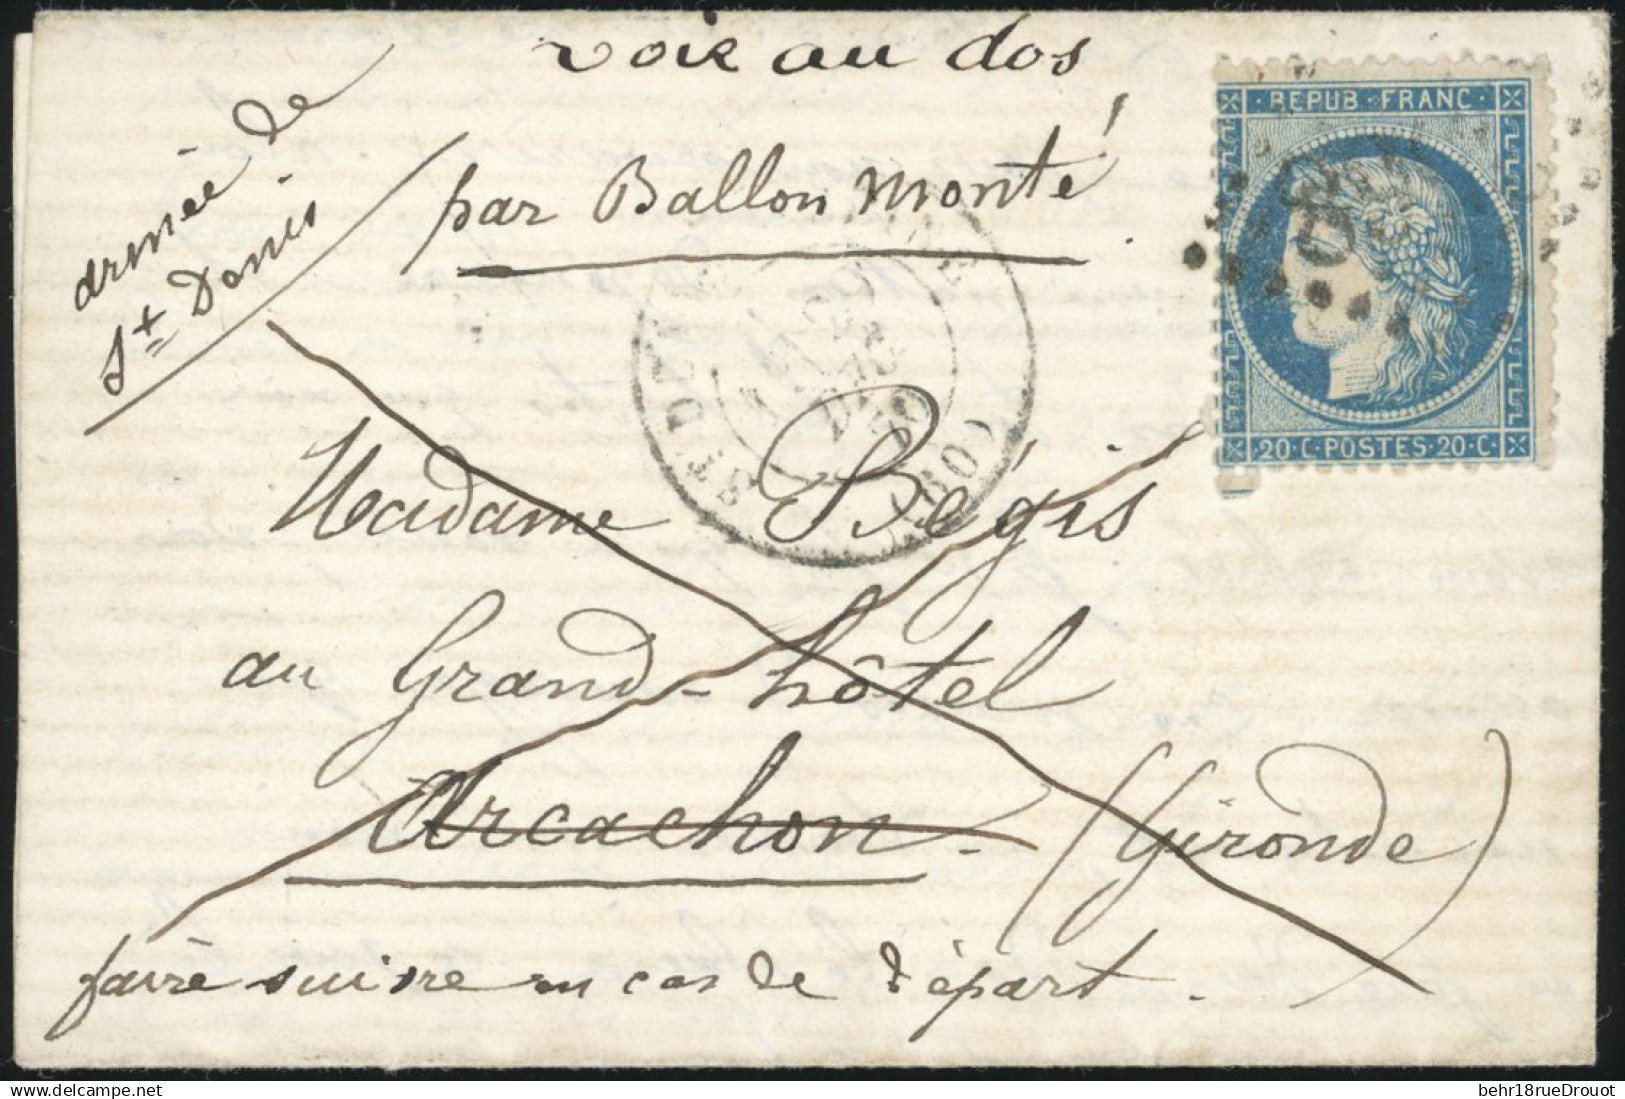 voir au dos
armée de
St Denis.
par Ballon monté
REPUB·FRANC·
20·C·POSTES·20·C·
(60)
Madame Bégis
au Grand-hôtel
Arcachon. (Gironde)
faire suivre en cas de départ.
behr18rueDrouot